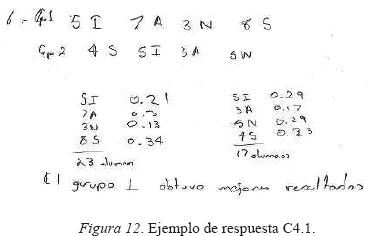 6 - Gp1 5 I 7 A 3 N 8 S
Gp2 4 S 5 I 3 A 5 N
5 I 0.21
7 A 0.3
3 N 0.13
8 S 0.34
23 alumnos
5 I 0.29
3 A 0.17
5 N 0.29
4 S 0.23
17 alumnos
El grupo 1 obtuvo mejores resultados
Figura 12. Ejemplo de respuesta C4.1.